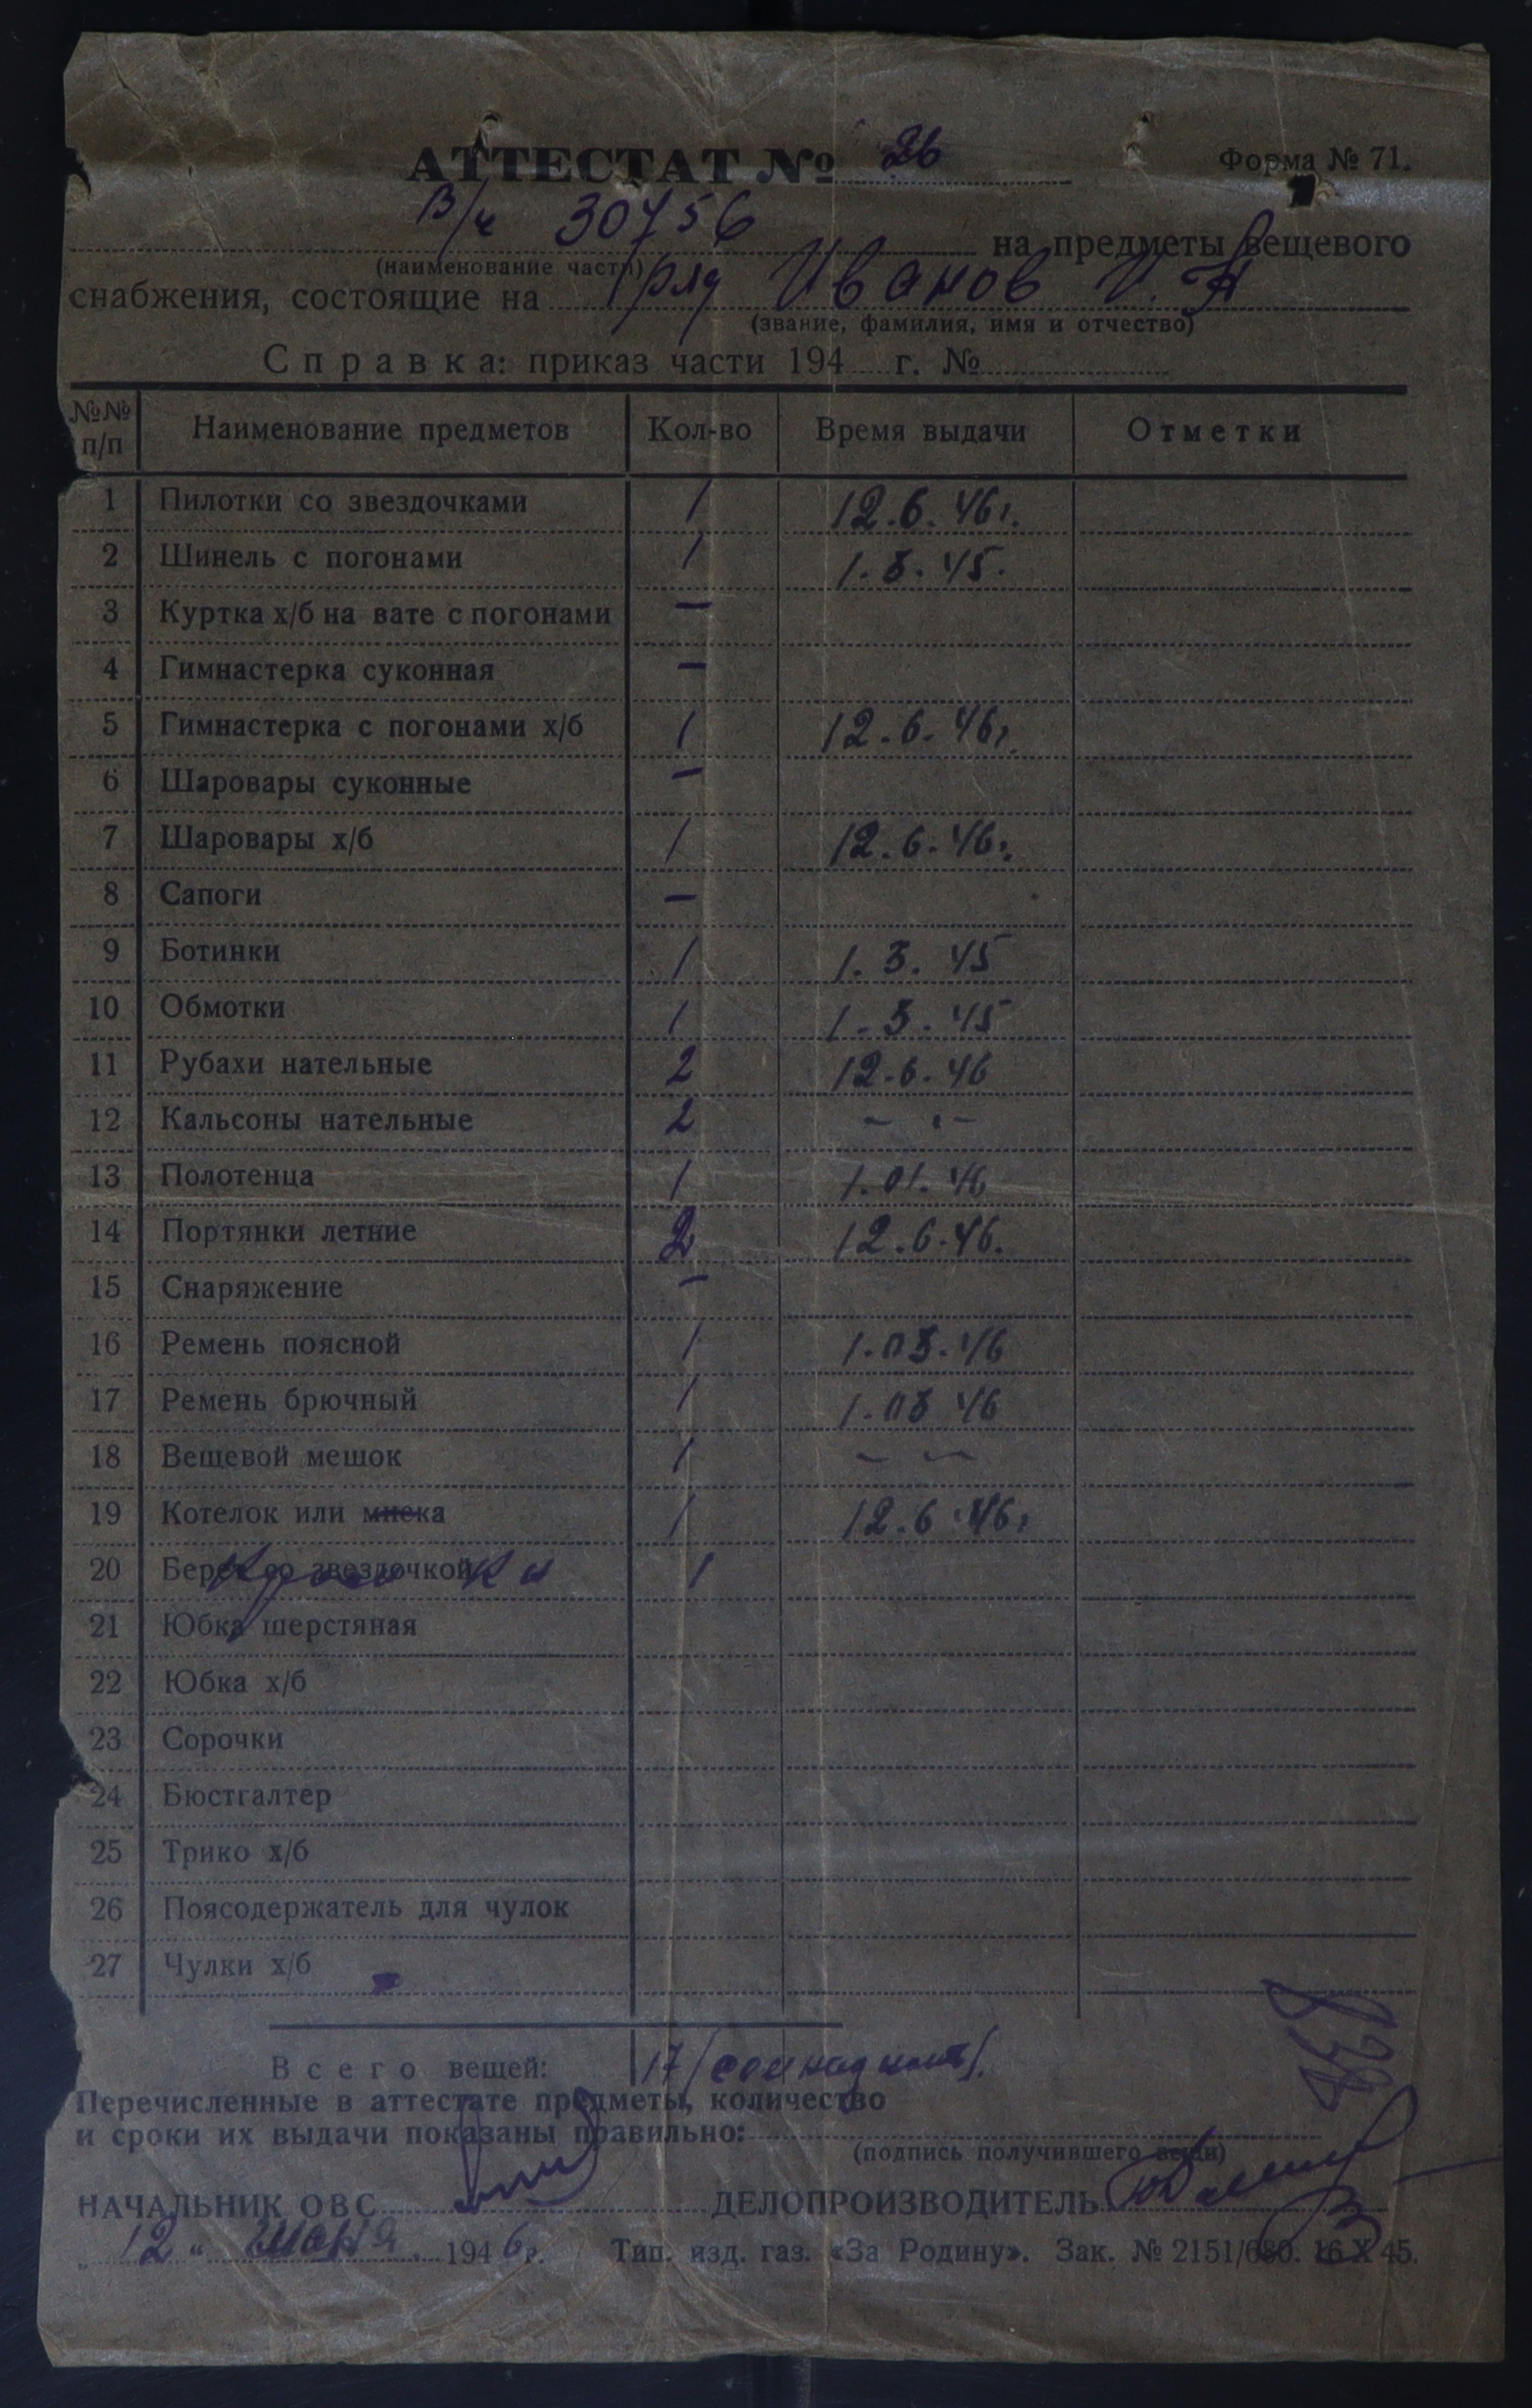 АТТЕСТАТ № 26 Форма № 71.
В/ч 30756 на предметы вещевого
(наименование части)
снабжения, состоящие на ряд Иванов И. А
(звание, фамилия, имя и отчество)
Справка: приказ части 194 г. №
№№ п/п Наименование предметов Кол-во Время выдачи Отметки
1 Пилотки со звездочками 1 12.6.46г.
2 Шинель с погонами 1 1.3.45.
3 Куртка х/б на вате с погонами —
4 Гимнастерка суконная —
5 Гимнастерка с погонами х/б 1 12.6.46г.
6 Шаровары суконные —
7 Шаровары х/б 1 12.6.46г.
8 Сапоги —
9 Ботинки 1 1.3.45
10 Обмотки 1 1.3.45
11 Рубахи нательные 2 12.6.46
12 Кальсоны нательные 2 — " —
13 Полотенца 1 1.01.46
14 Портянки летние 2 12.6.46.
15 Снаряжение —
16 Ремень поясной 1 1.03.46
17 Ремень брючный 1 1.03 46
18 Вещевой мешок 1 — —
19 Котелок или миска 1 12.6.46г
20 Берет со звездочкой 1
21 Юбка шерстяная
22 Юбка х/б
23 Сорочки
24 Бюстгалтер
25 Трико х/б
26 Поясодержатель для чулок
27 Чулки х/б
Всего вещей: 17 (семнадцать).
Перечисленные в аттестате предметы, количество
и сроки их выдачи показаны правильно:
(подпись получившего вещи)
НАЧАЛЬНИК ОВС ДЕЛОПРОИЗВОДИТЕЛЬ
„ 12 " июня 1946 г. Тип. изд. газ. «За Родину». Зак. № 2151/680. 16 X 45.